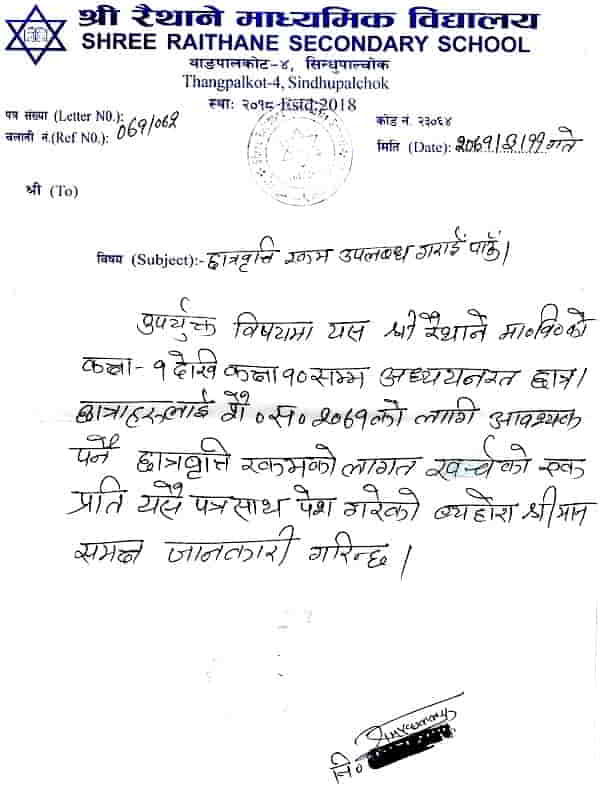 श्री रैथाने माध्यमिक विद्यालय
SHREE RAITHANE SECONDARY SCHOOL
थाङपालकोट-४, सिन्धुपाल्चोक
Thangpalkot-4, Sindhupalchok
स्थाः २०१८ Estd:2018
पत्र संख्या (Letter N0.): 069/062
चलानी नं.(Ref N0.):
कोड नं. २३०६४
मिति (Date): 2069/3/११ गते
श्री (To)
विषय (Subject):- छात्रवृत्ति रकम उपलब्ध गराई पाऊँ।
उपर्युक्त विषयमा यस श्री रैथाने मा०वि०को
कक्षा-१ देखि कक्षा १० सम्म अध्ययनरत छात्र।
छात्राहरुलाई शै०स० २०६९को लागि आवश्यक
पर्ने छात्रवृत्ति रकमको लागत खर्चको एक
प्रति यसै पत्रसाथ पेश गरेको ब्यहोरा श्रीमान
समक्ष जानकारी गरिन्छ।
नि०